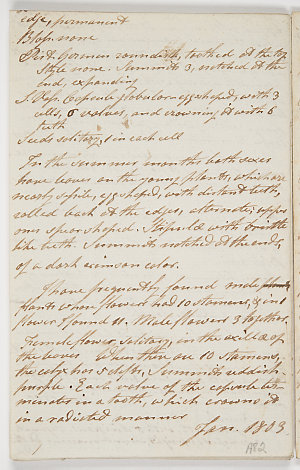 edge, permanent
Bloss. none
Pist. Germen roundish, toothed at the top
Style none. Summits 3, notched at the
end, expanding
S. Vess. Capsule globular-egg shaped, with 3
cells, 6 valves, and crowning it with 6
teeth
Seeds solitary, 1 in each cell
In the Summer months both sexes
have leaves on the young plants, which are
nearly sessile, egg shaped, with distant teeth,
rolled back at the edges, alternate, upper
ones spear shaped. Stipulæ with bristle
like teeth. Summits notched at the ends,
of a dark crimson color.
I have frequently found male
plants when flowers had 10 stamens, & in 1
flower I found 11. Male flowers 3 together.
Female flower, solitary, in the axillæ of
the leaves. When there are 10 stamens,
the calyx has 5 clefts, Summits reddish
purple. Each valve of the capsule ter-
minates in a tooth, which crowns it
in a radiated manner
Jan. 1803
A82